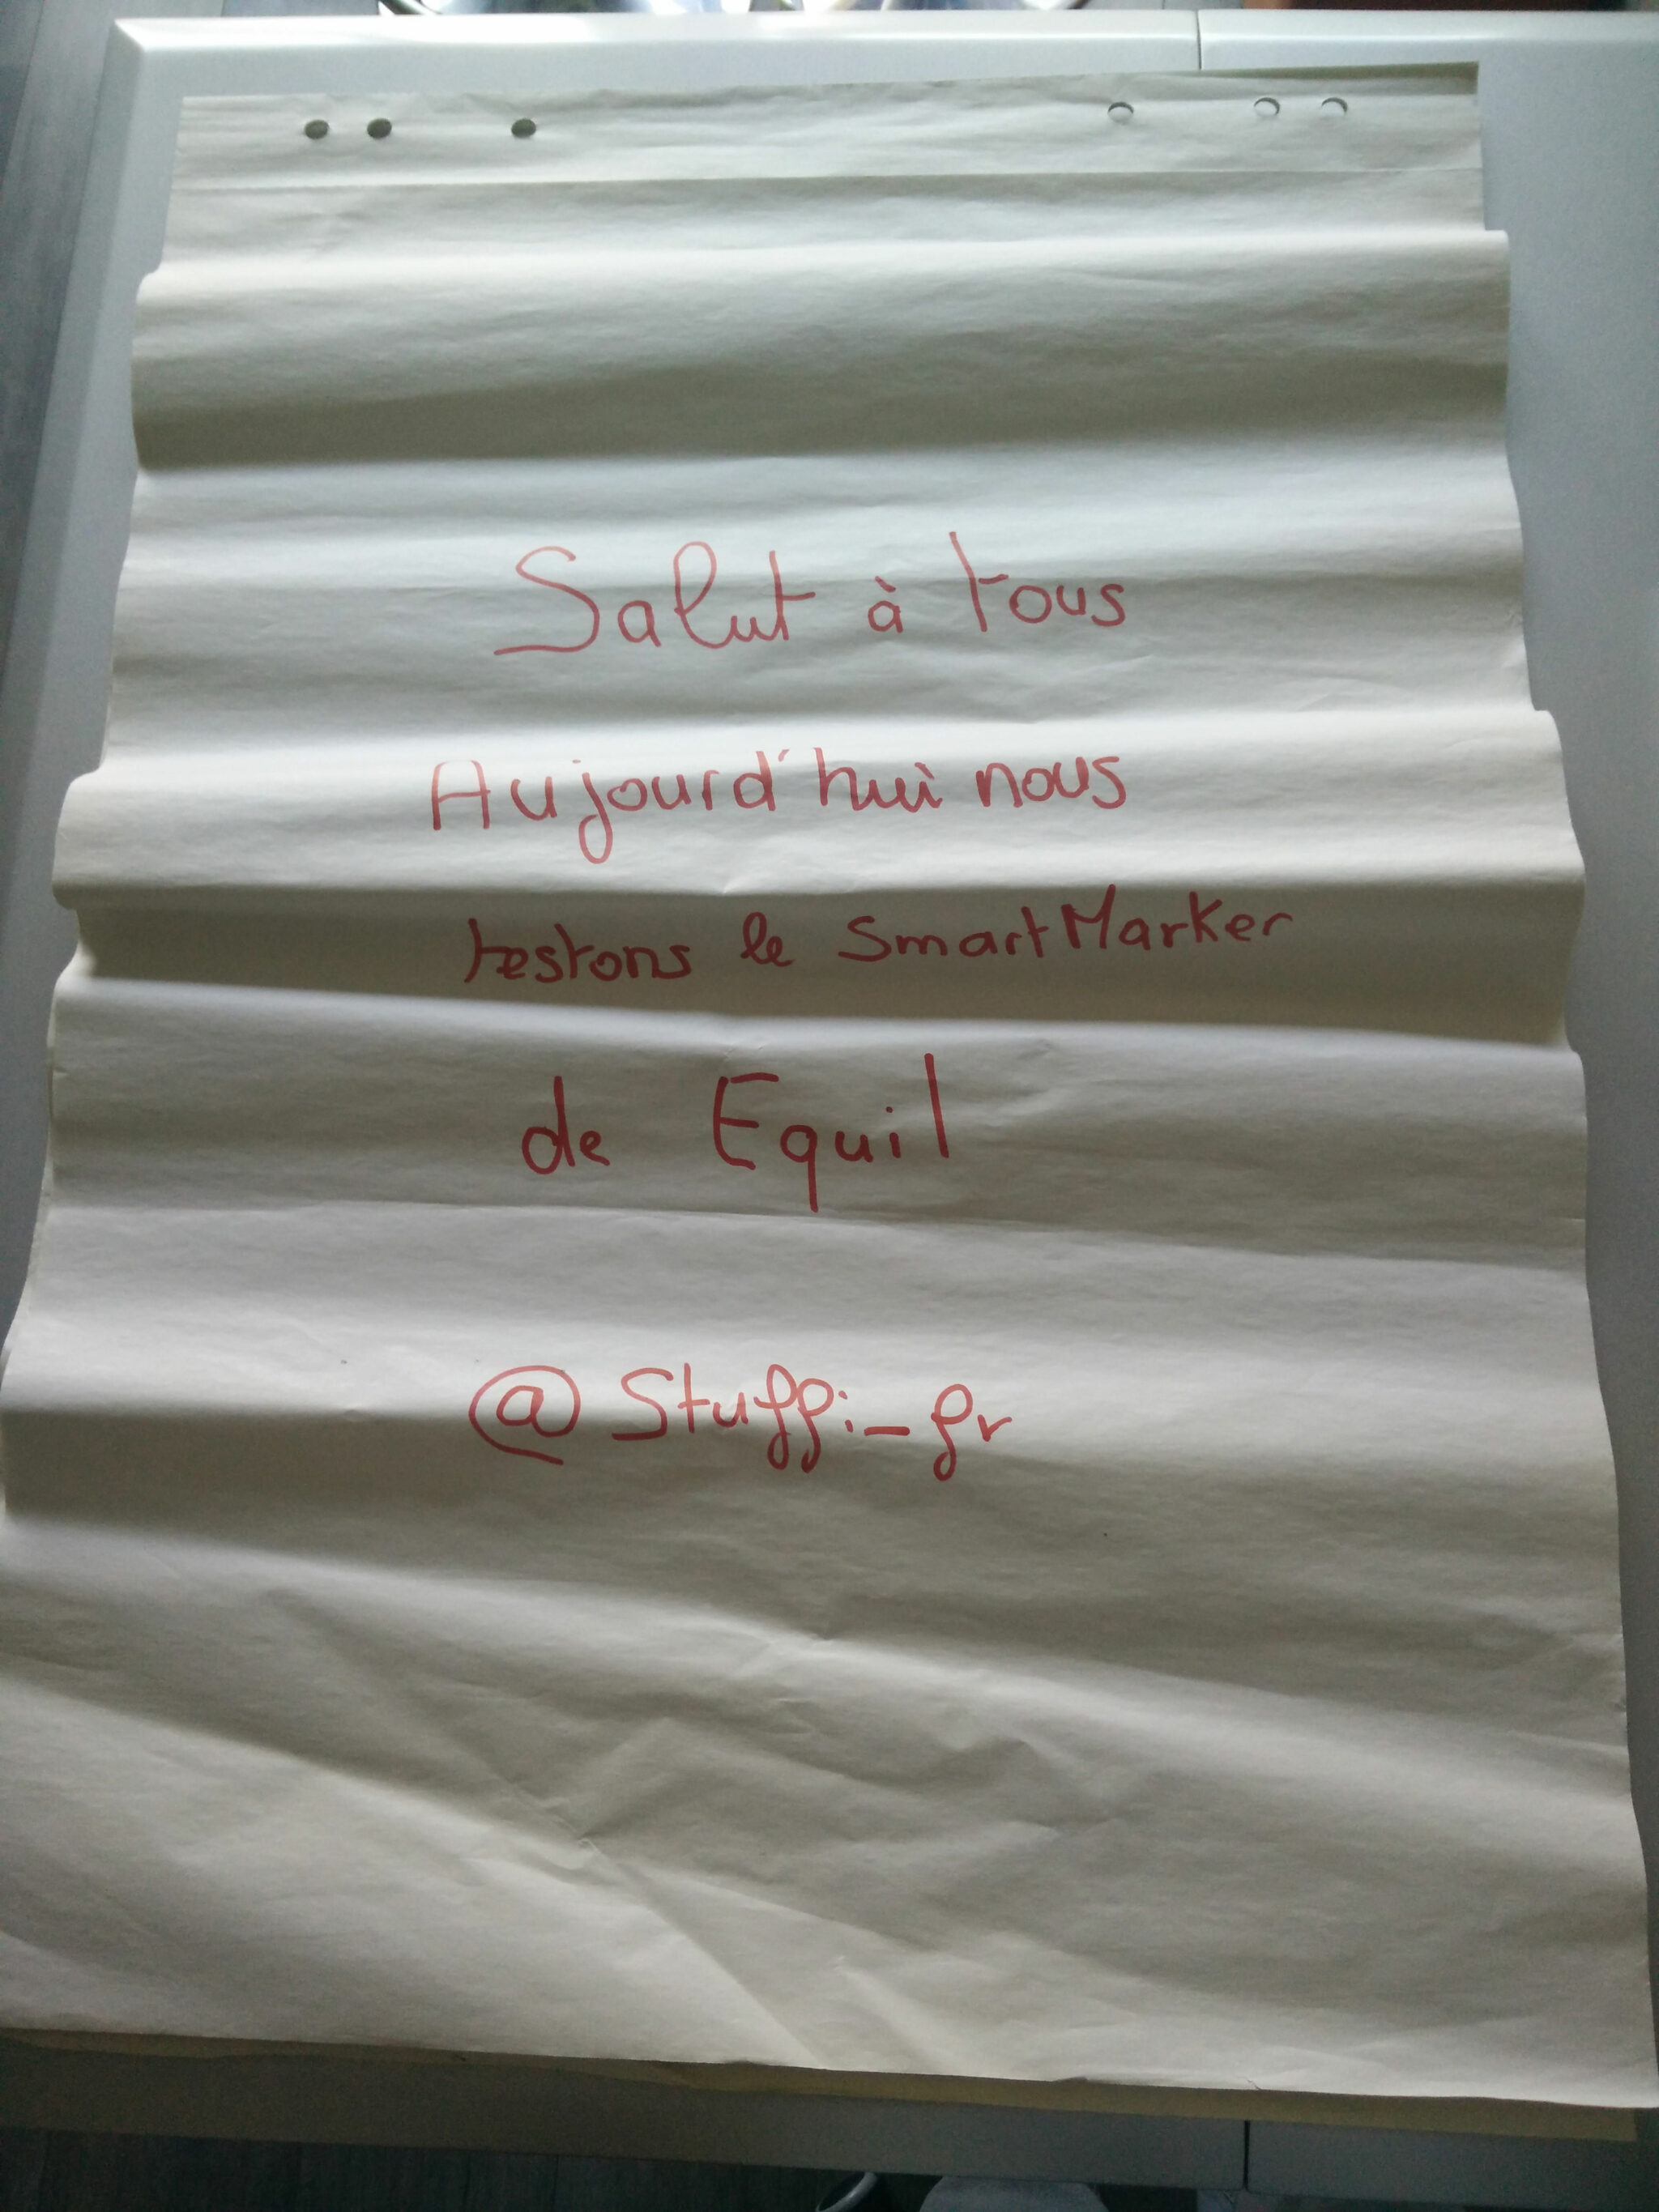 Salut à tous
Aujourd'hui nous
testons le SmartMarker
de Equil
@Stuffi_fr